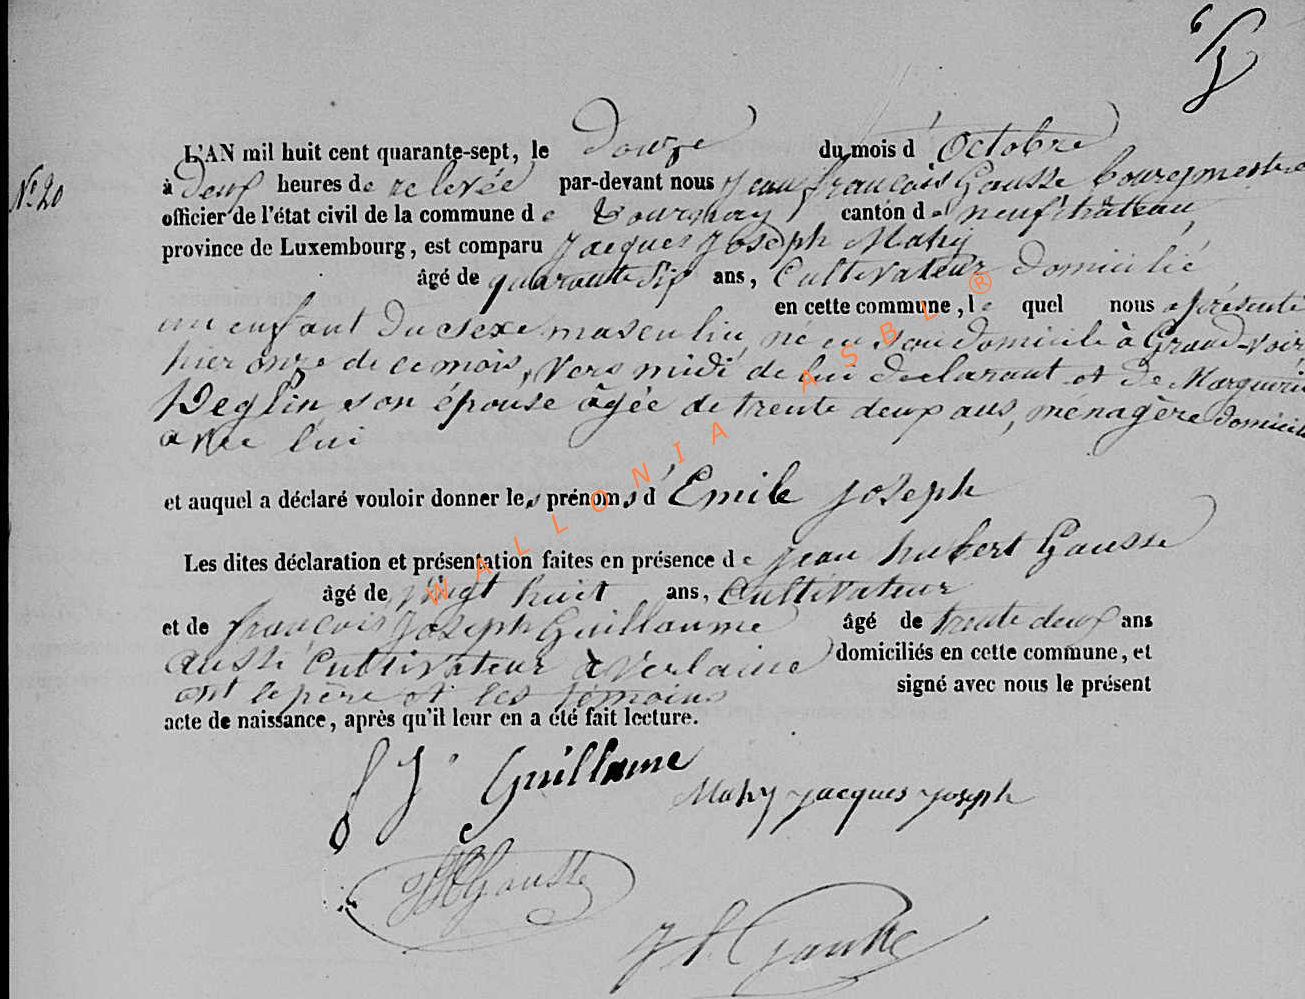 N° 20
L'AN mil huit cent quarante-sept, le Douze du mois d'Octobre
à Deux heures de relevée par-devant nous Jean françois Gausse bourgmestre
officier de l'état civil de la commune de Tournay canton de neufchateau,
province de Luxembourg, est comparu Jacques Joseph Mahy
âgé de quarante six ans, Cultivateur domicilié
en cette commune, le quel nous a présenté
un enfant du sexe masculin, né en son domicile à Grand-voir
hier onze de ce mois, vers midi de lui déclarant et de Marguerite
Deglin son épouse âgée de trente deux ans, ménagère domicili
avec lui
et auquel a déclaré vouloir donner les prénoms d'Emile Joseph
Les dites déclaration et présentation faites en présence de Jean hubert Gausse
âgé de vingt huit ans, Cultivateur
et de françois Joseph Guillaume âgé de trente deux ans
aussi Cultivateur à Verlaine domiciliés en cette commune, et
ont le père et les témoins signé avec nous le présent
acte de naissance, après qu'il leur en a été fait lecture.
f J Guillaume
Mahy Jacques Joseph
JH Gausse
J f Gausse
WALLONIA ASBL ®